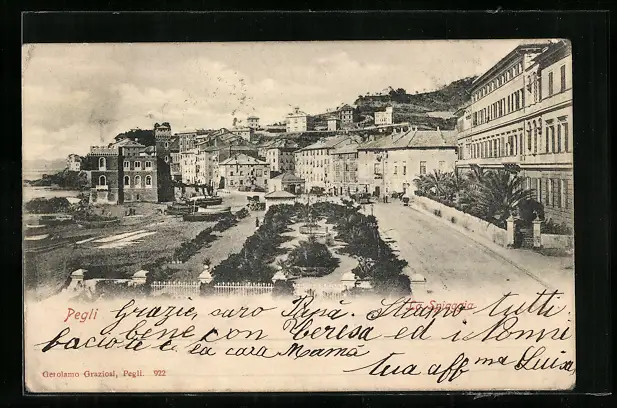 Pegli
La Spiaggia
Grazie, caro Papà. Stiamo tutti
bene con Teresa ed i Nonni
baciote e la cara Mamá
tua affma Luisa
Gerolamo Graziosi, Pegli. 922